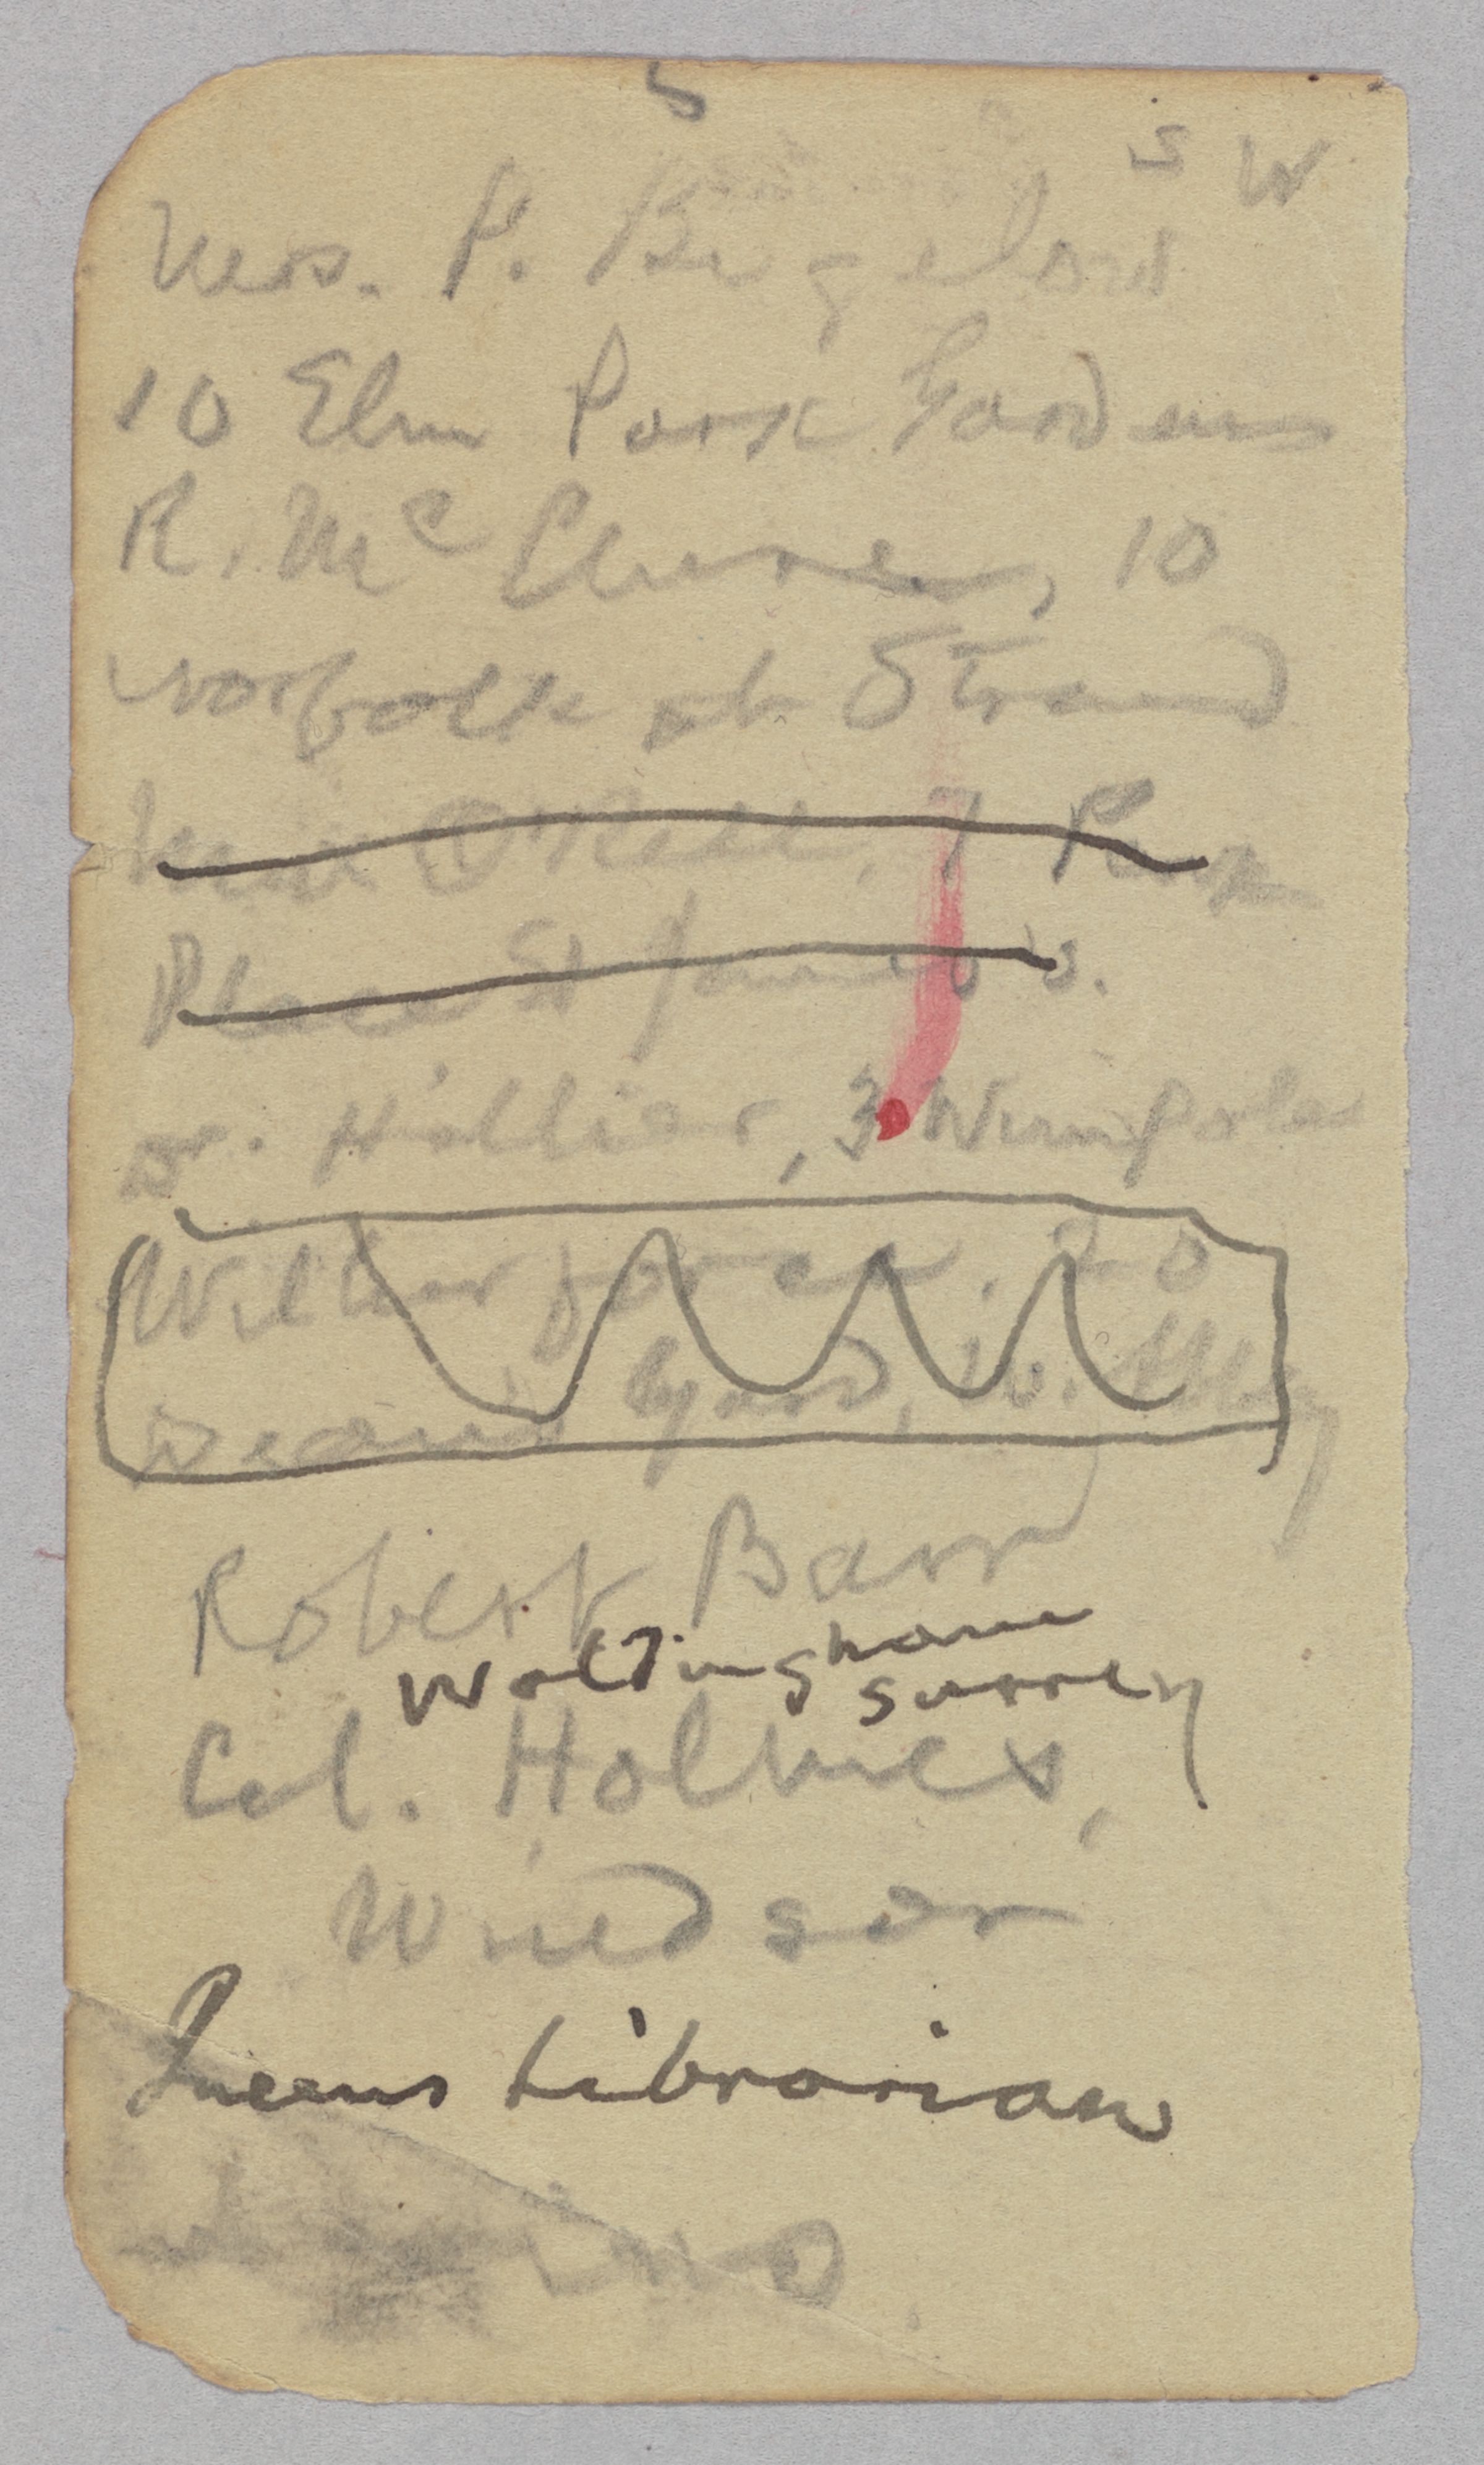 S W
Mrs. P. Bigelow
10 Elm Park Gardens
R. McClure, 10
Norfolk st Strand
Miss O'Neill, 7 Park
Place St James's.
Dr. Hillier, 3 Wimpole
Wilberforce. 20
Deans Yard, W. Abby
Robert Barr
Woldingham
Surrey
Col. Holmes,
Windsor
Queens Librarian